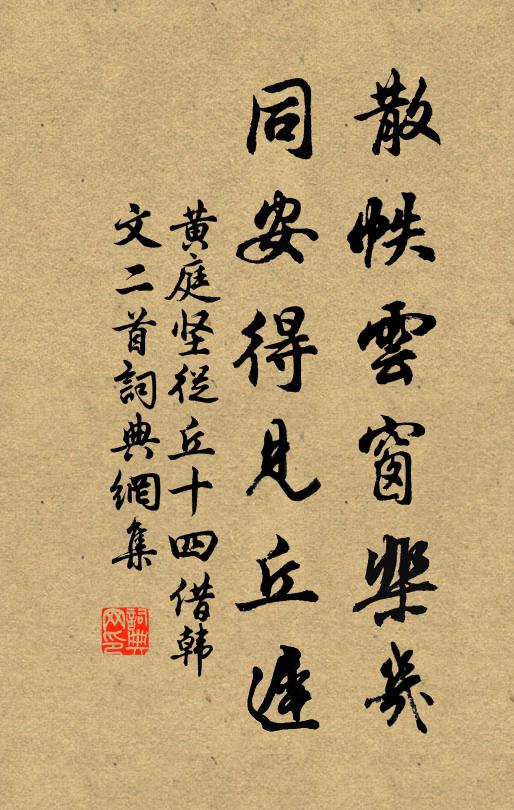 散帙雲窗棐幾
同安得見丘遲
黄庭坚從丘十四借韩
文二首詞典網集
詞典
网印